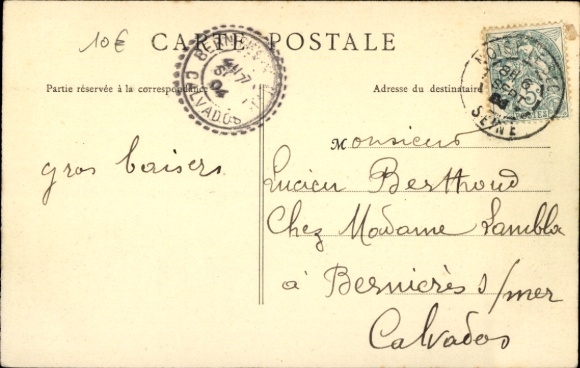 10€
CARTE POSTALE
Partie réservée à la correspondance
Adresse du destinataire
BERNIÈRES
04
CALVADOS
SEPT
04
SEINE
5
gros baisers
Monsieur
Lucien Berthoud
Chez Madame Lambla
à Bernières s/mer
Calvados